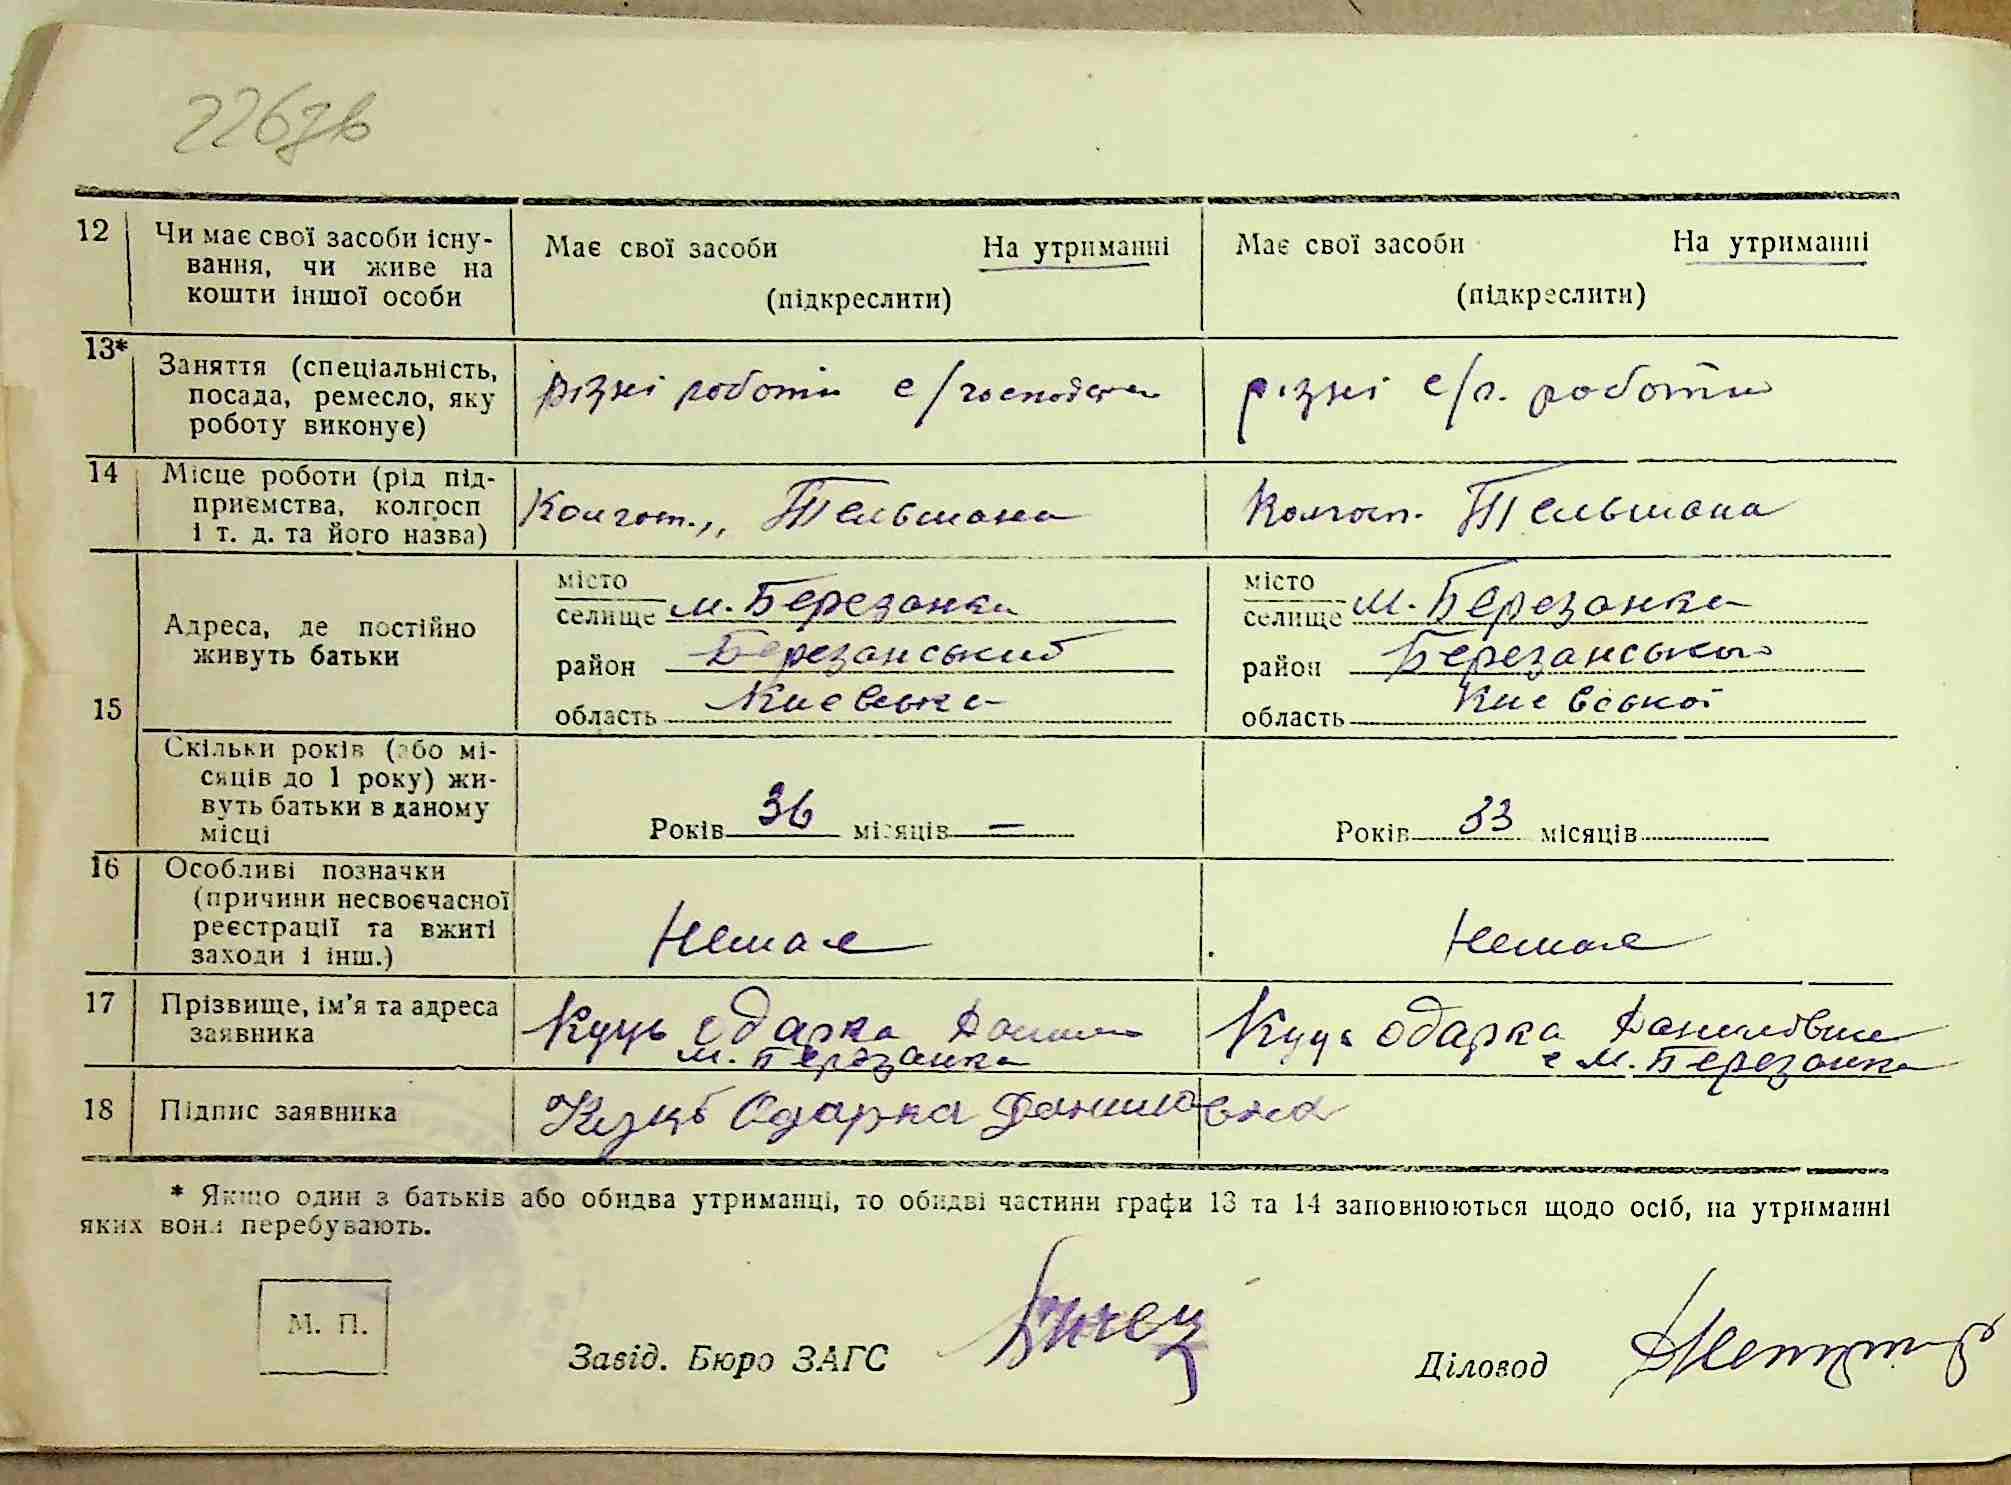 226зв
12 Чи має свої засоби існу-
вання, чи живе на
кошти іншої особи
Має свої засоби На утриманні
(підкреслити)
Має свої засоби На утриманні
(підкреслити)
13* Заняття (спеціальність,
посада, ремесло, яку
роботу виконує)
різні роботи с/господ
різні с/г. роботи
14 Місце роботи (рід під-
приємства, колгосп
і т. д. та його назва)
Колгосп. „ Тельмана
Колгосп. Тельмана
15
Адреса, де постійно
живуть батьки
місто
селище м. Березанка
район Березанський
область Києвська
місто
селище м. Березанка
район Березанського
область Києвської
Скільки років (або мі-
сяців до 1 року) жи-
вуть батьки в даному
місці
Років 36 місяців —
Років 33 місяців
16 Особливі позначки
(причини несвоєчасної
реєстрації та вжиті
заходи і інш.)
Немає
Немає
17 Прізвище, ім'я та адреса
заявника
Куць Одарка Данил
м. Березанка
Куць Одарка Даниловна
с м. Березанка
18 Підпис заявника
Куць Одарка Даниловна
* Якщо один з батьків або обидва утриманці, то обидві частини графи 13 та 14 заповнюються щодо осіб, на утриманні
яких вони перебувають.
М. П.
Завід. Бюро ЗАГС
Діловод